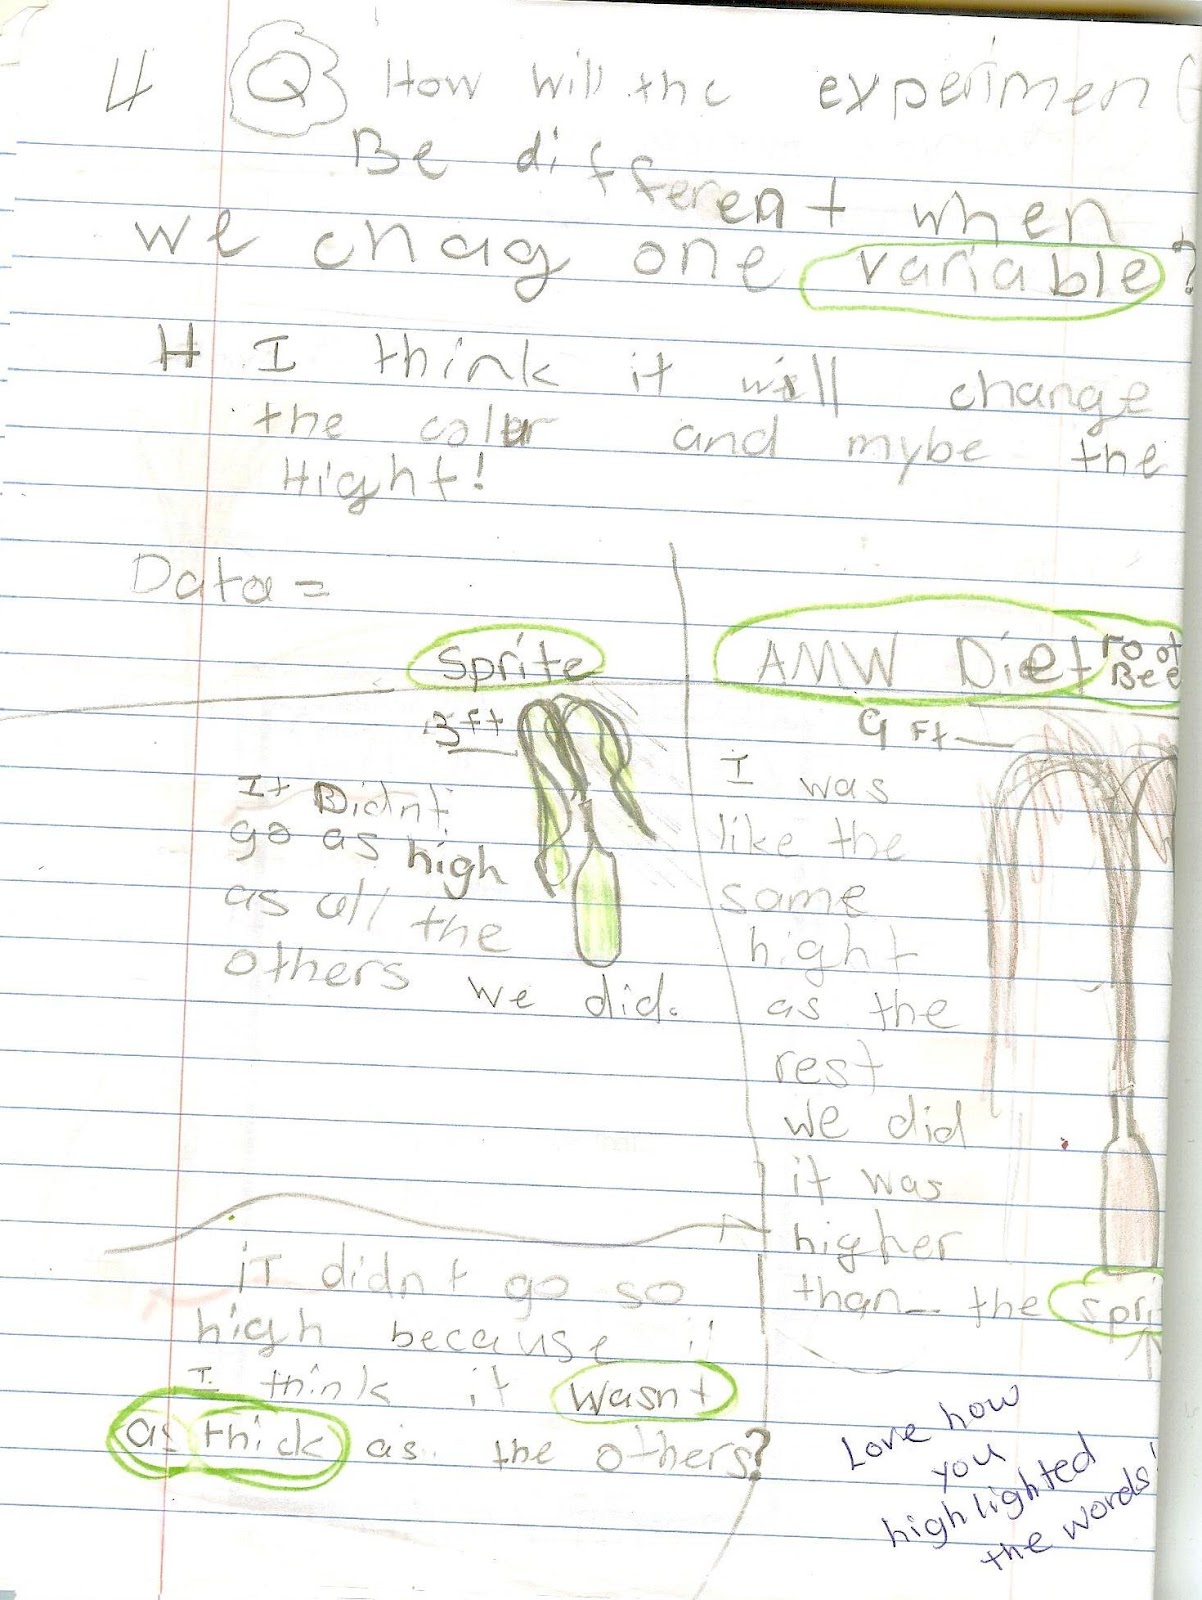 4 Q How will the experiment
Be different when
we chag one variable?
H I think it will change
the color and mybe the
Hight!
Data =
Sprite
3 ft
It Didnt
go as high
as all the
others we did.
it didnt go so
high because
I think it wasnt
as thick as the others?
AMW Diet root
Bee
9 Ft
I was
like the
same
hight
as the
rest
we did
it was
higher
than the spri
Love how
you
highlighted
the words!